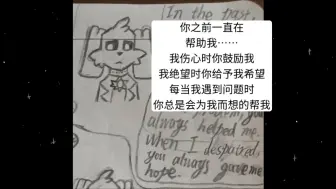 In the past,
你之前一直在
帮助我……
我伤心时你鼓励我
我绝望时你给予我希望
每当我遇到问题时
你总是会为我而想的帮我
always helped me.
When I despaired,
you always gave me
hope.